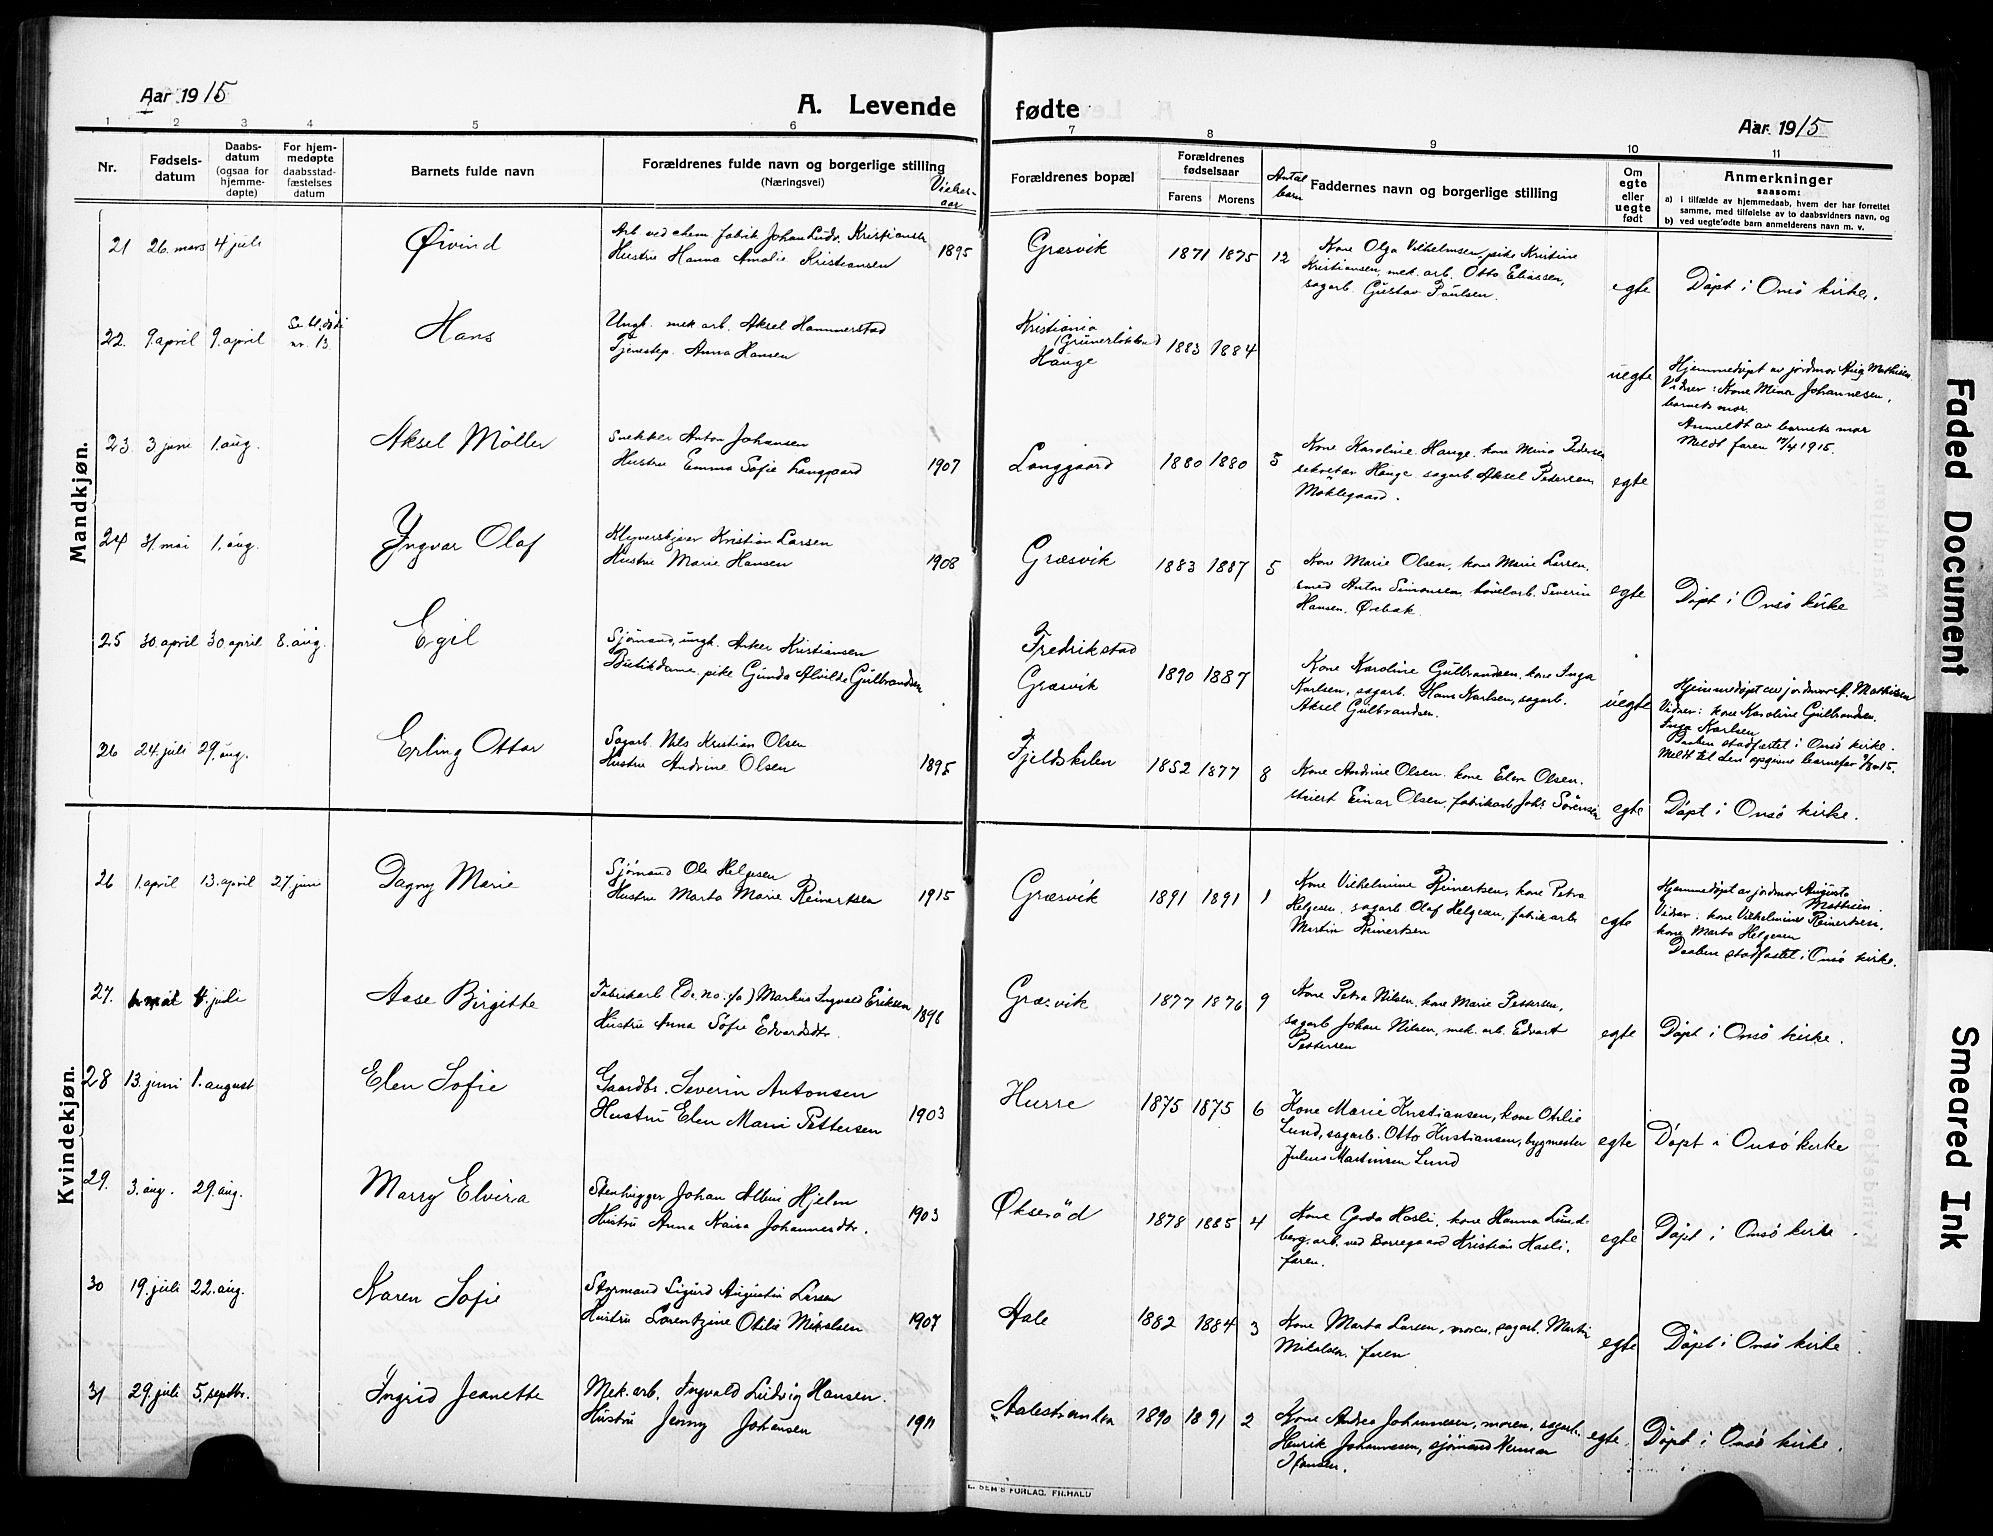 Aar 1915
A. Levende fødte
Aar 1915
1 2 3 4 5 6 7 8 9 10 11
Nr.
Fødsels-
datum
Daabs-
datum
(ogsaa for
hjemme-
døpte)
For hjem-
medøpte
daabsstad-
fæstelses
datum
Barnets fulde navn
Forældrenes fulde navn og borgerlige stilling
(Næringsvei)
Vielses-
aar
Forældrenes bopæl
Forældrenes
fødselsaar
Farens Morens
Antal
barn
Faddernes navn og borgerlige stilling
Om
egte
eller
uegte
født
Anmerkninger
saasom:
a) i tilfælde av hjemmedaab, hvem der har forrettet
samme, med tilføielse av to daabsvidners navn, og
b) ved uegte fødte barn anmelderens navn m. v.
Mandkjøn.
21 26. mars 4 juli
Øivind
Arb. ved chem. fabrik Johan Ludv. Kristiansen
Hustru Hanna Amalie Kristiansen
1895
Græsvik
1871 1875 12
Kone Olga Vilhelmsen, pike Kristine
Kristiansen, mek. arb. Otto Eliassen,
sagarb. Gustav Paulsen.
egte
Døpt i Onsö kirke.
22. 9. april 9. april
nr. 13.
Hans
Ungk. mek. arb. Aksel Hammerstad
Tjenestep. Anna Hansen
Kristiania
(Grünerløkken)
Hauge
1883 1884
uegte
Hjemmedøpt av jordmor Aug. Mathisen.
Vidner: Kone Mina Johannesen,
barnets mor.
Anmeldt av barnets mor
Meldt faren 1915.
23 3 juni 1. aug.
Aksel Möller
Snekker Anton Johansen
Hustru Emma Sofie Langgaard
1907
Langgaard
1880 1880 5
Kone Karoline Hauge, kone Mina Pedersen
sekretær Hauge, sagarb. Aksel Pedersen
Möklegaard.
egte
24 31 mai 1. aug.
Yngvar Olaf
Kristian Larsen
Hustru Marie Hansen
1908
Græsvik
1883 1887 5
Kone Marie Olsen, kone Marie Larsen,
smed Anton Simonsen, høvelarb. Severin
Hansen, Øvebæk.
egte
Döpt i Onsö kirke
25 30. april 30 april 8. aug.
Egil
Sjømand, ungk. Anker Kristiansen
Butikdame, pike Gunda Alvilde Gulbrandsen
Fredrikstad
Græsvik
1890 1887
Kone Karoline Gulbrandsen, kone Inga
Karlsen, sagarb. Hans Karlsen, sagarb.
Aksel Gulbrandsen.
uegte
Hjemmedøpt av jordmor A. Mathisen
Vidner: kone Karoline Gulbrandsen,
Inga Karlsen
Daaben stadfæstet i Onsö kirke.
Meldt til den opgivne barnefar 15.
26 24. juli 29. aug.
Erling Ottar
Sagarb. Nils Kristian Olsen
Hustru Andrine Olsen
1895
Fjeldskilen
1852 1877 8
Kone Andrine Olsen, kone Elen Olsen,
Einar Olsen, fabrikarb. Johs. Sörensen
egte
Döpt i Onsö kirke.
Kvindekjøn.
26 1. april 13. april 27. juni
Dagny Marie
Sjømand Ole Helgesen
Hustru Marta Marie Reinertsen
1915
Græsvik
1891 1891 1
Kone Vilhelmine Reinertsen, kone Petra
Helgesen, sagarb. Olaf Helgesen, fabrikarb.
Martin Reinertsen
egte
Hjemmedøpt av jordmor Augusta
Mathisen.
Vidner: kone Vilhelmine Reinertsen,
kone Marta Helgesen
Daaben stadfæstet i Onsö kirke.
27. mai 4. juli
Aase Birgitte
Fabrikarb. (De.no.fa) Markus Ingvald Eriksen
Hustru Anna Sofie Edvardsdtr.
1896
Græsvik
1877 1876 9
Kone Petra Nilsen, kone Marie Pettersen,
sagarb. Johan Nilsen, mek. arb. Edvart
Pettersen
egte
Döpt i Onsö kirke.
28 13. juni 1. august
Elen Sofie
Gaardbr. Severin Antonsen
Hustru Elen Marie Pettersen
1903
Hurre
1875 1875 6
Kone Marie Kristiansen, kone Otilie
Lund, sagarb. Otto Kristiansen, bygmester
Julius Martinsen Lund
egte
Döpt i Onsö kirke
29. 3. aug. 29. aug.
Marry Elvira
Stenhugger Johan Albin Hjelm
Hustru Anna Kaisa Johannesdtr.
1903
Økseröd
1878 1885 4
Kone Gerda Hasli, kone Hanna Lund-
berg, arb. ved Borregaard Kristian Hasli,
faren.
egte
Döpt i Onsö kirke.
30 19. juli 22. aug.
Karen Sofie
Styrmand Sigurd Augustin Larsen
Hustru Lorentzine Otilie Mikalsen
1907
Aale
1882 1884 3
Kone Marta Larsen, moren, sagarb. Martin
Mikalsen, faren
egte
Döpt i Onsö kirke.
31 29. juli 5. septbr.
Ingrid Jeanette
Mek. arb. Ingvald Ludvig Hansen.
Hustru Jenny Johansen
1911
Aalestranden
1890 1891 2
Kone Andrea Johannesen, moren, sagarb.
Henrik Johannesen, sjømand Herman
Hansen.
egte.
Döpt i Onsö kirke.
E. SEM'S FORLAG, FR.HALD
Faded Document
Smeared Ink